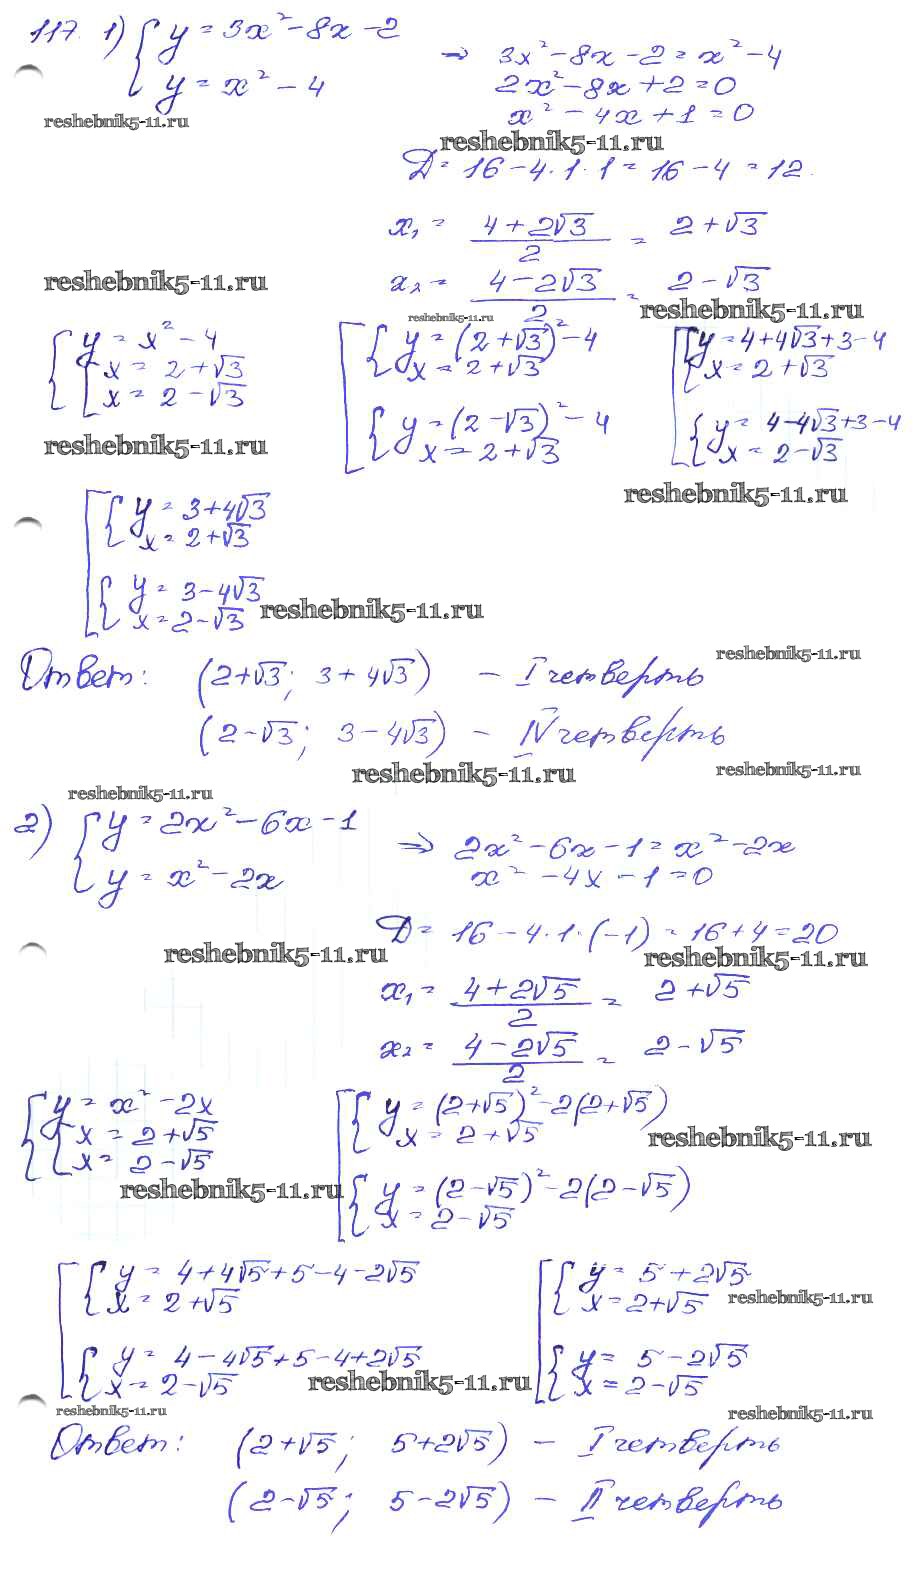 117. 1) { y = 3x² - 8x - 2
y = x² - 4
⇒ 3x² - 8x - 2 = x² - 4
2x² - 8x + 2 = 0
x² - 4x + 1 = 0
reshebnik5-11.ru
reshebnik5-11.ru
D = 16 - 4·1·1 = 16 - 4 = 12.
x₁ = (4 + 2√3)/2 = 2 + √3
x₂ = (4 - 2√3)/2 = 2 - √3
reshebnik5-11.ru
reshebnik5-11.ru
reshebnik5-11.ru
{ y = x² - 4
[ x = 2 + √3
x = 2 - √3
[ { y = (2 + √3)² - 4
x = 2 + √3
{ y = (2 - √3)² - 4
x = 2 + √3
[ { y = 4 + 4√3 + 3 - 4
x = 2 + √3
{ y = 4 - 4√3 + 3 - 4
x = 2 - √3
reshebnik5-11.ru
reshebnik5-11.ru
[ { y = 3 + 4√3
x = 2 + √3
{ y = 3 - 4√3
x = 2 - √3
reshebnik5-11.ru
Ответ: (2 + √3; 3 + 4√3) - I четверть
reshebnik5-11.ru
(2 - √3; 3 - 4√3) - IV четверть
reshebnik5-11.ru
reshebnik5-11.ru
reshebnik5-11.ru
2) { y = 2x² - 6x - 1
y = x² - 2x
⇒ 2x² - 6x - 1 = x² - 2x
x² - 4x - 1 = 0
D = 16 - 4·1·(-1) = 16 + 4 = 20
reshebnik5-11.ru
reshebnik5-11.ru
x₁ = (4 + 2√5)/2 = 2 + √5
x₂ = (4 - 2√5)/2 = 2 - √5
{ y = x² - 2x
[ x = 2 + √5
x = 2 - √5
[ { y = (2 + √5)² - 2(2 + √5)
x = 2 + √5
{ y = (2 - √5)² - 2(2 - √5)
x = 2 - √5
reshebnik5-11.ru
reshebnik5-11.ru
[ { y = 4 + 4√5 + 5 - 4 - 2√5
x = 2 + √5
{ y = 4 - 4√5 + 5 - 4 + 2√5
x = 2 - √5
[ { y = 5 + 2√5
x = 2 + √5
{ y = 5 - 2√5
x = 2 - √5
reshebnik5-11.ru
reshebnik5-11.ru
reshebnik5-11.ru
reshebnik5-11.ru
Ответ: (2 + √5; 5 + 2√5) - I четверть
(2 - √5; 5 - 2√5) - II четверть